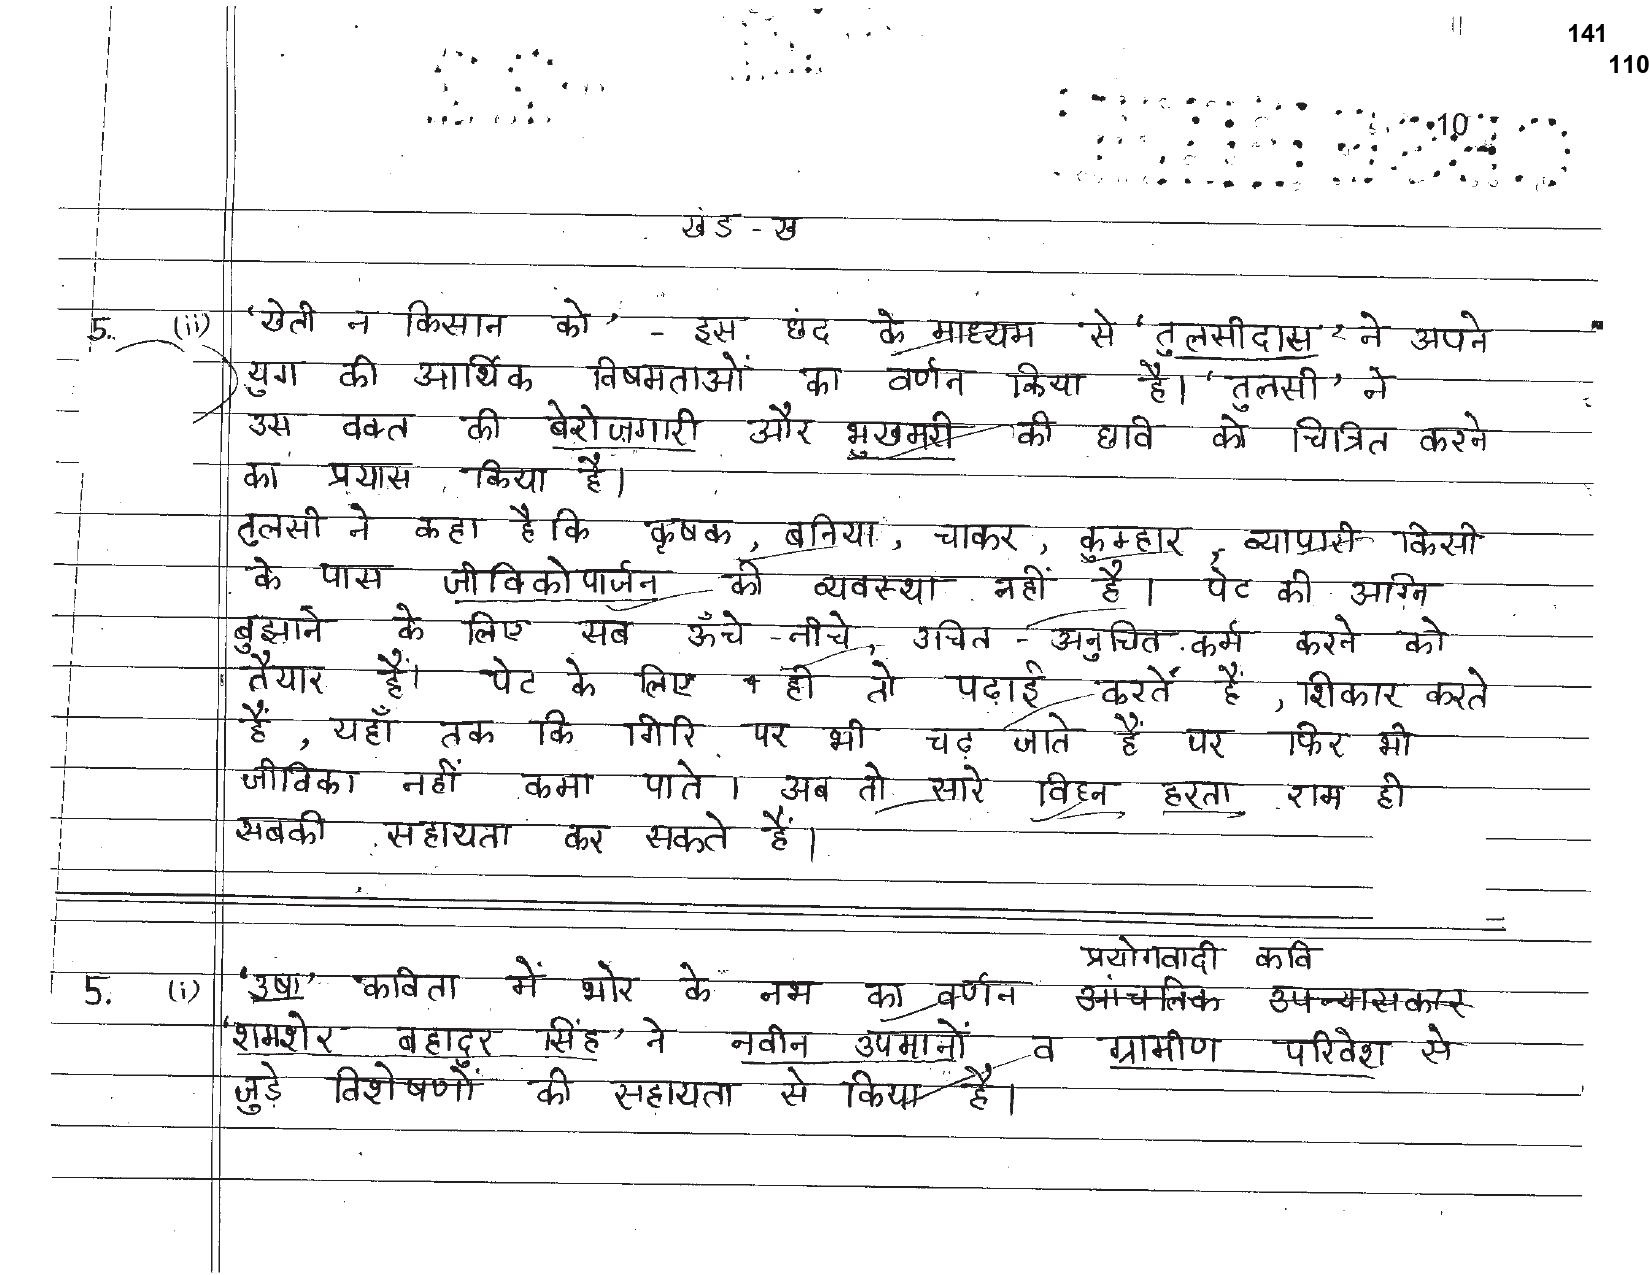 141
110
10
खंड - ख
5. (ii) 'खेती न किसान को' - इस छंद के माध्यम से 'तुलसीदास' ने अपने
युग की आर्थिक विषमताओं का वर्णन किया है। 'तुलसी' ने
उस वक्त की बेरोज़गारी और भुखमरी की छवि को चित्रित करने
का प्रयास किया है।
तुलसी ने कहा है कि कृषक, बनिया, चाकर, कुम्हार, व्यापारी किसी
के पास जीविकोपार्जन की व्यवस्था नहीं है। पेट की अग्नि
बुझाने के लिए सब ऊँचे - नीचे, उचित - अनुचित कर्म करने को
तैयार हैं। पेट के लिए ही तो पढ़ाई करतें हैं, शिकार करते
हैं, यहाँ तक कि गिरि पर भी चढ़ जाते हैं पर फिर भी
जीविका नहीं कमा पाते। अब तो सारे विघ्न हरता राम ही
सबकी सहायता कर सकते हैं।
प्रयोगवादी कवि
5. (i) 'उषा' कविता में भोर के नभ का वर्णन आंचलिक उपन्यासकार
'शमशेर बहादुर सिंह' ने नवीन उपमानों व ग्रामीण परिवेश से
जुड़े विशेषणों की सहायता से किया है।